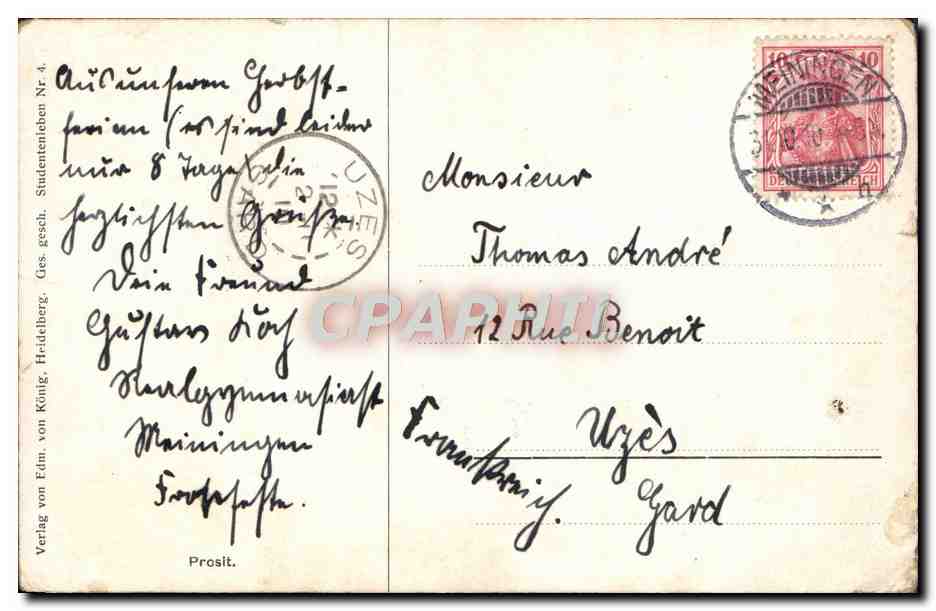 Verlag von Edm. von König, Heidelberg. Ges. gesch. Studentenleben Nr. 4.
Aus unseren Herbst-
ferien (es sind leider
nur 8 Tage) die
herzlichsten Grüße,
Dein Freund
Gustav Koch
Realgymnasiast
Meiningen
Prosit.
10 10
MEININGEN
UZES
GARD
Monsieur
Thomas André
12 Rue Benoit
Uzès
Frankreich.
Gard
CPAPHIL